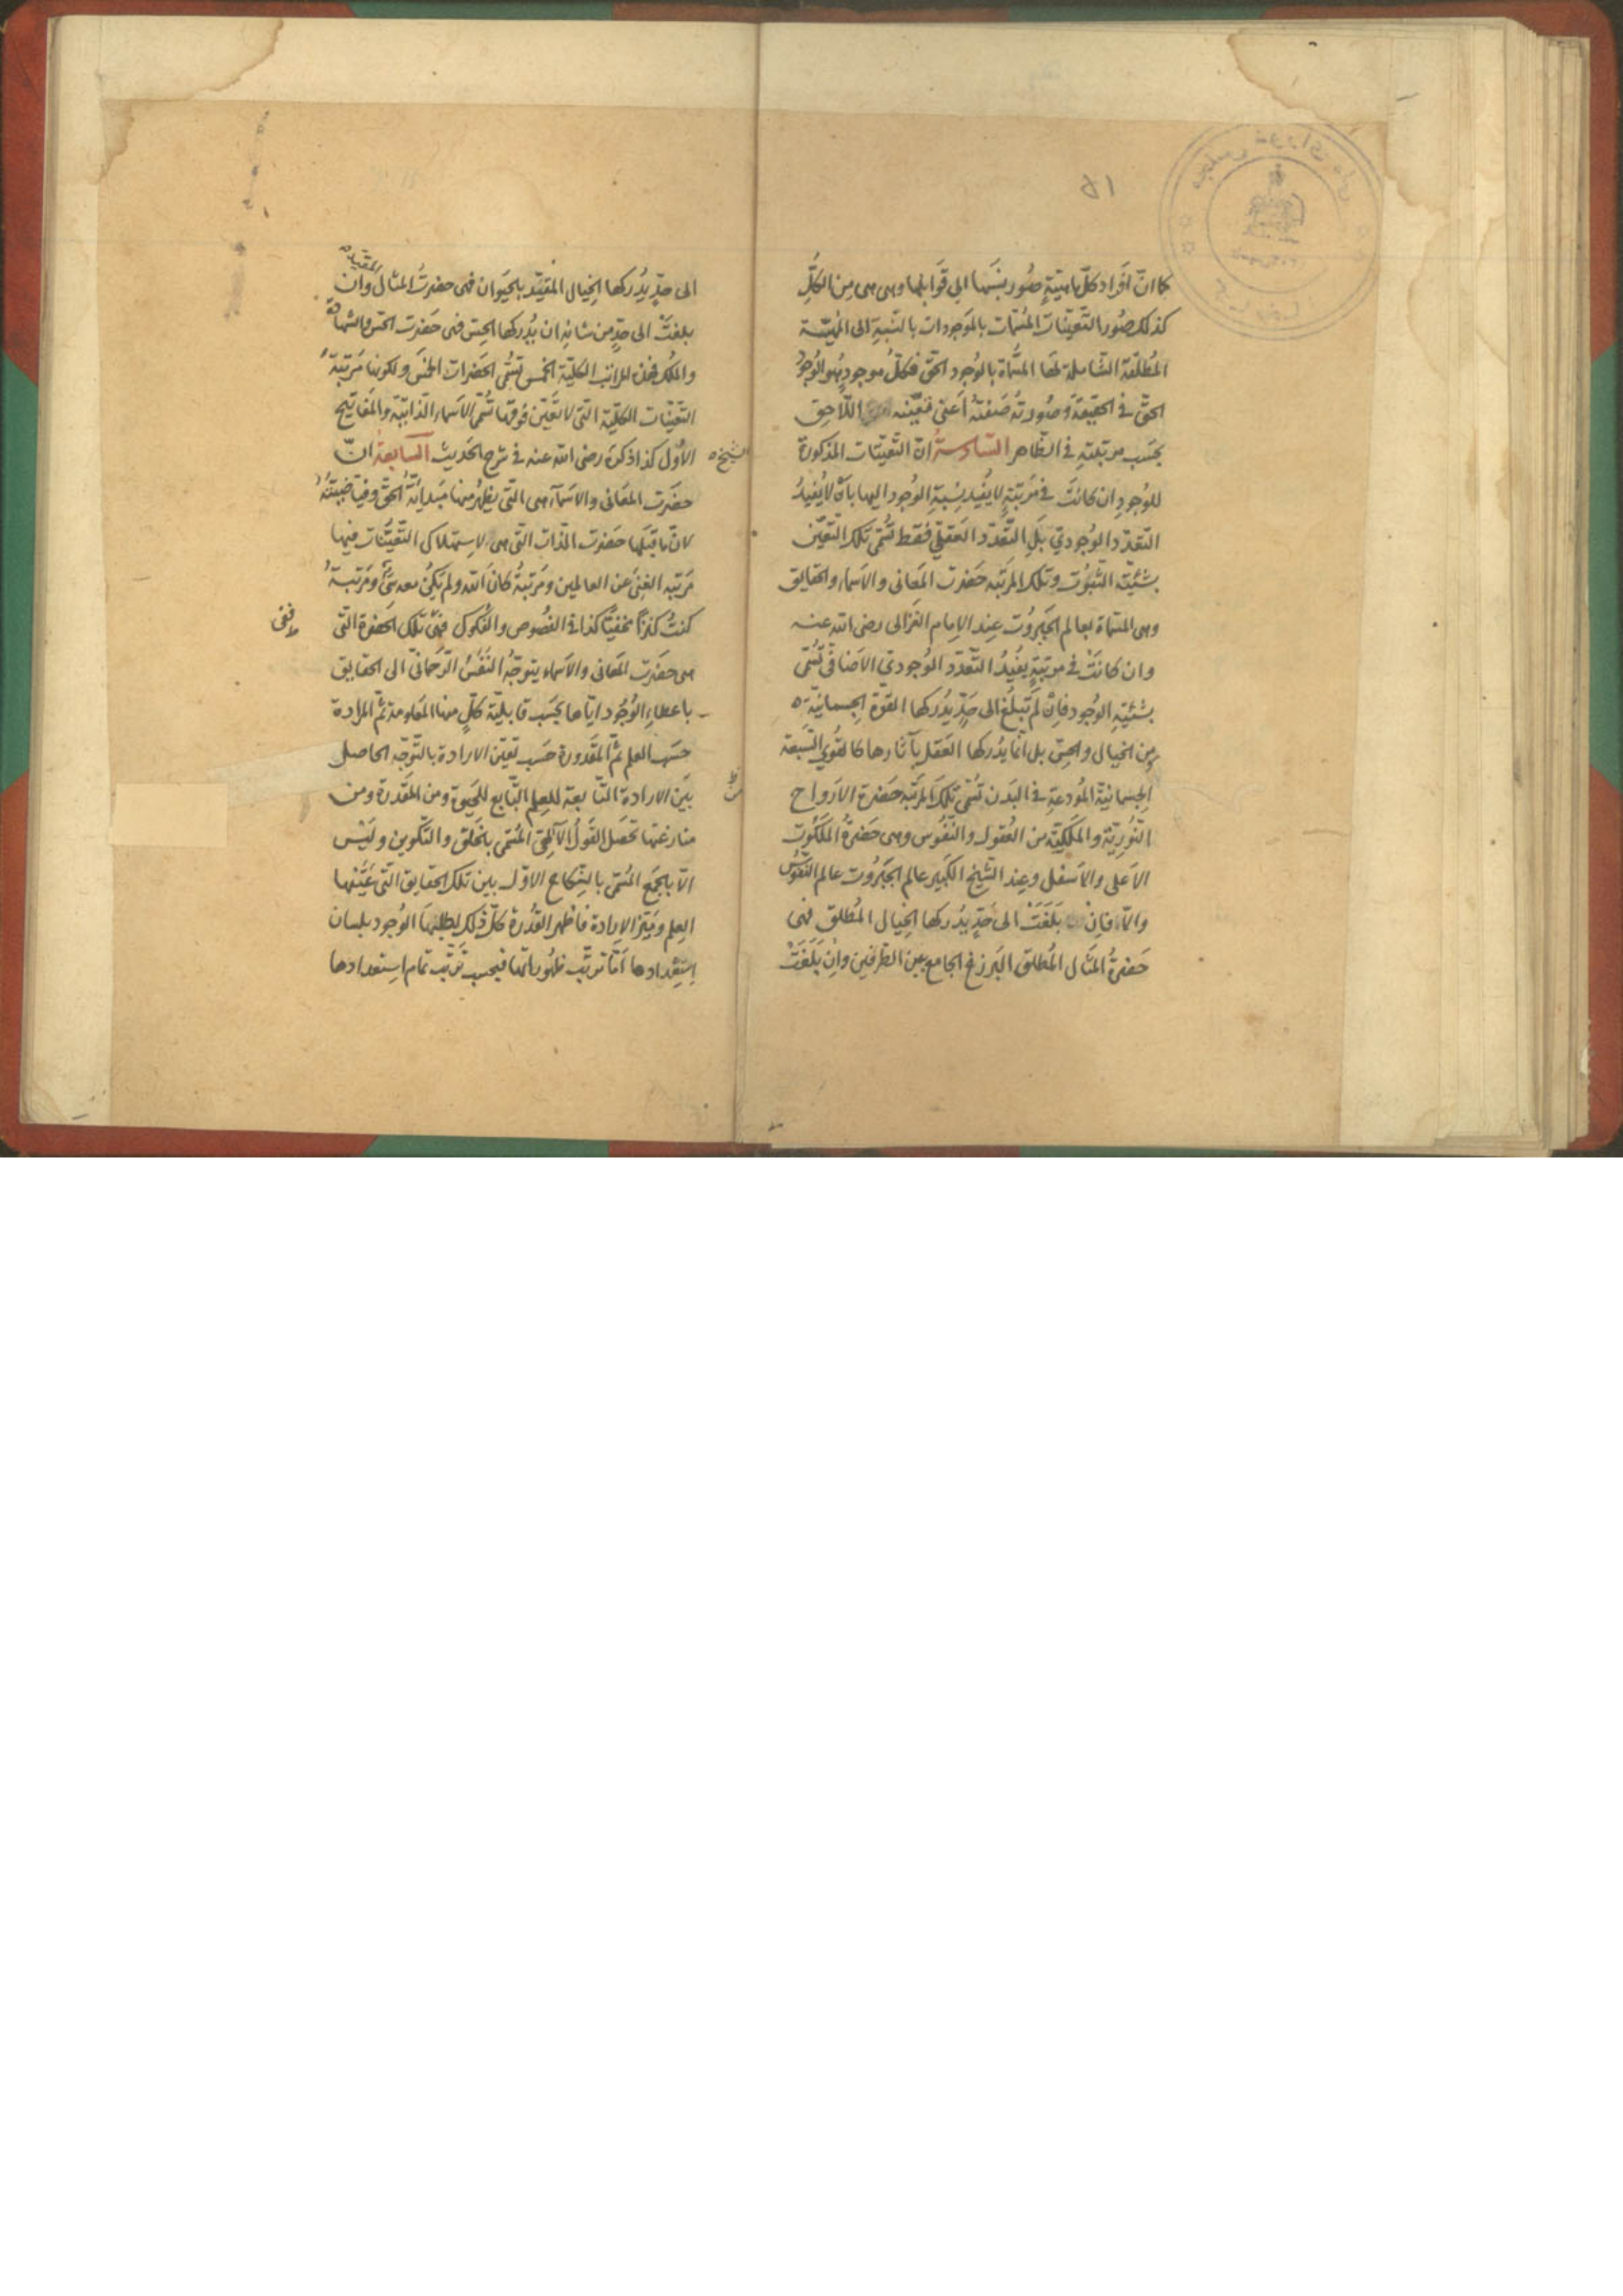 ۵۱
كما انّ افراد كلّ ماهيّة صُور نِسَبها الى قَوَابلها وهى هى مِن الكلِّ
كذلك صُور التّعيّنات المُسمّات بالمَوجودات بالنّسبةِ الى المهيّة
المُطلقة الشاملة لها المسُمّاة بالوُجود الحقّ فكلُّ موجودٍ هو الوُجودُ
الحقّ فى الحقيقة وصُورتُه صَفتهُ أعنى تعيّنه اللّاحِق
بحَسب مرتبتهِ فى الظّاهر السّادسة انّ التّعيّنات المذكورة
للوُجودِ ان كانَت فى مَرتبةٍ لا يُفيد نِسبةِ الوُجود اليها بأن لا يُفيدُ
التّعدّد الوُجودي بل التّعدّد العَقلى فقط تُسمّى تلك التّعيّن
بشيئيّة الثّبوُت وتلك المرتبه حَضرت المَعانى والاَسماء والحقايق
وهى المسمّاة بعالم الجَبَروُت عِند الاِمام الغزالى رضى الله عنه
وان كانَت فى مرتبةٍ يفُيدُ التّعدّد الوُجودي الاضافى تُسمّى
بشيئيّةِ الوجود فاِن لَم تَبلغ الى حَدٍّ يُدركها القوّة الجسمانيّة
مِن الخيال والحِسّ بل انّما يدُركها العَقل بآثارها كالقُوي السّبعة
الجسمانيّة المُودعةِ فى البَدن تسُمّى تلك المرتبه حَضرة الاَرواح
النُّوريّة والمَلكيّة من العُقول والنّفُوس وهى حَضرةُ المَلكُوت
الاَعلى والاسفل وعِند الشّيخ الكَبير عالم الجَبَرُوت عالم النّفوُس
والاّ فاِن بَلغَت الى حَدٍّ يدُركها الخِيال المُطلق فهى
حَضرةُ المثال المُطلق البَرزخ الجامع بين الطّرفين واِن بَلَغَتْ
الى حدٍّ يدُركها الخيال المقيّد بالحيَوان فهى حضرتُ المثال وان
المقيّد
بلغت الى حدٍّ مِن شانِه ان يُدركها الحِسّ فهى حَضرت الحسّ والشهادة
والملك فهذه المراتب الكليّة الخمس تسُمّى الحَضرات الخمس ولكونها مَرتبة
التعيّنات الكليّة التى لا تعيّن فوقها تُسمّى الاَسماء الذاتيّة والمَفاتيح
الاُول كذا ذكره رضى الله عنه فى شرح الحديث السّابعة انّ
الشيخ
حضرت المعَانى والاسمآء هى التّى يظهرُ منها مَبدائيّة الحقّ وفيّاضيّتهُ
لانّ ما قبَلها حَضرت الذات التى هى لاِستهلاك التعيّنات فيها
مَرتبه الغنِىَ عَن العالمين ومَرتبةُ كان الله ولم يكن معه شىٌ ومَرتبةُ
كنتُ كنزاً مخفيّاً كذا فى النصُوص والفُكوك فهى تلك الحضرة التى
هى حضرت المَعانى والاسماء يتوجّهُ النفَسُ الرّحمانىّ الى الحقايق
باعطاءِ الوُجود ايّاها بحَسب قابليّة كلٍّ منها المعَلومة ثمّ المرادة
حسَب العلم ثمّ المَقدورة حَسب تعيّن الارادة بالتّوجّه الحاصل
بَين الارادة التّابعة للعِلم التّابع للحَيوة ومن المَقدرة ومن
مقارعتها تحصَل القَولُ الآلهىّ المُسمّى بالخلق والتّكوين وليَس
الاّ بالجمَع المسُمّى بالنّكاح الاوّل بين تلك الحقايق التى عيّنها
العِلم وميّز الاِرادة فأظهر القُدرة كلّ ذلك لطلبها الوُجود بلسان
اِستعِدادها أمّا ترتّب ظهُوراتها فبحسب تَرتّب تمام اِستعدادها